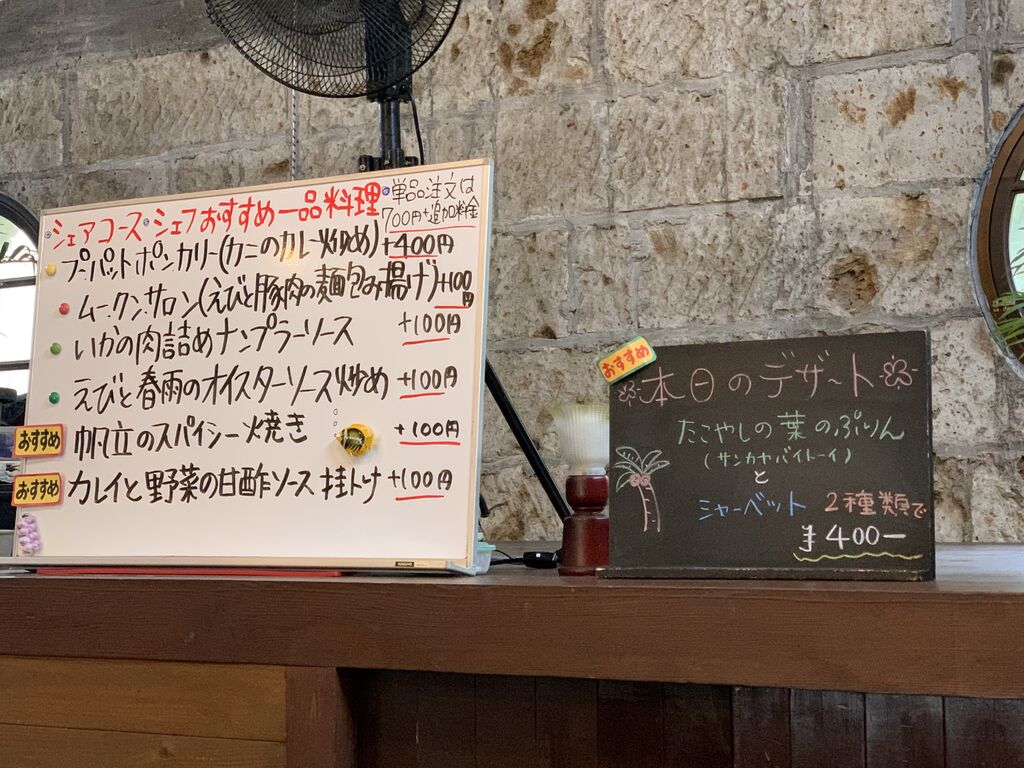 シェアコース・シェフおすすめ一品料理
単品注文は
700円+追加料金
プーパットポンカリー(カニのカレー炒め)+400円
ムー・クン・サロン(えびと豚肉の麺包み揚げ)+100円
いかの肉詰めナンプラーソース +100円
えびと春雨のオイスターソース炒め +100円
おすすめ 帆立のスパイシー焼き +100円
おすすめ カレイと野菜の甘酢ソース掛け +100円
おすすめ
本日のデザート
たこやしの葉のぷりん
(サンカヤバイトーイ)
と
シャーベット 2種類で
¥400ー